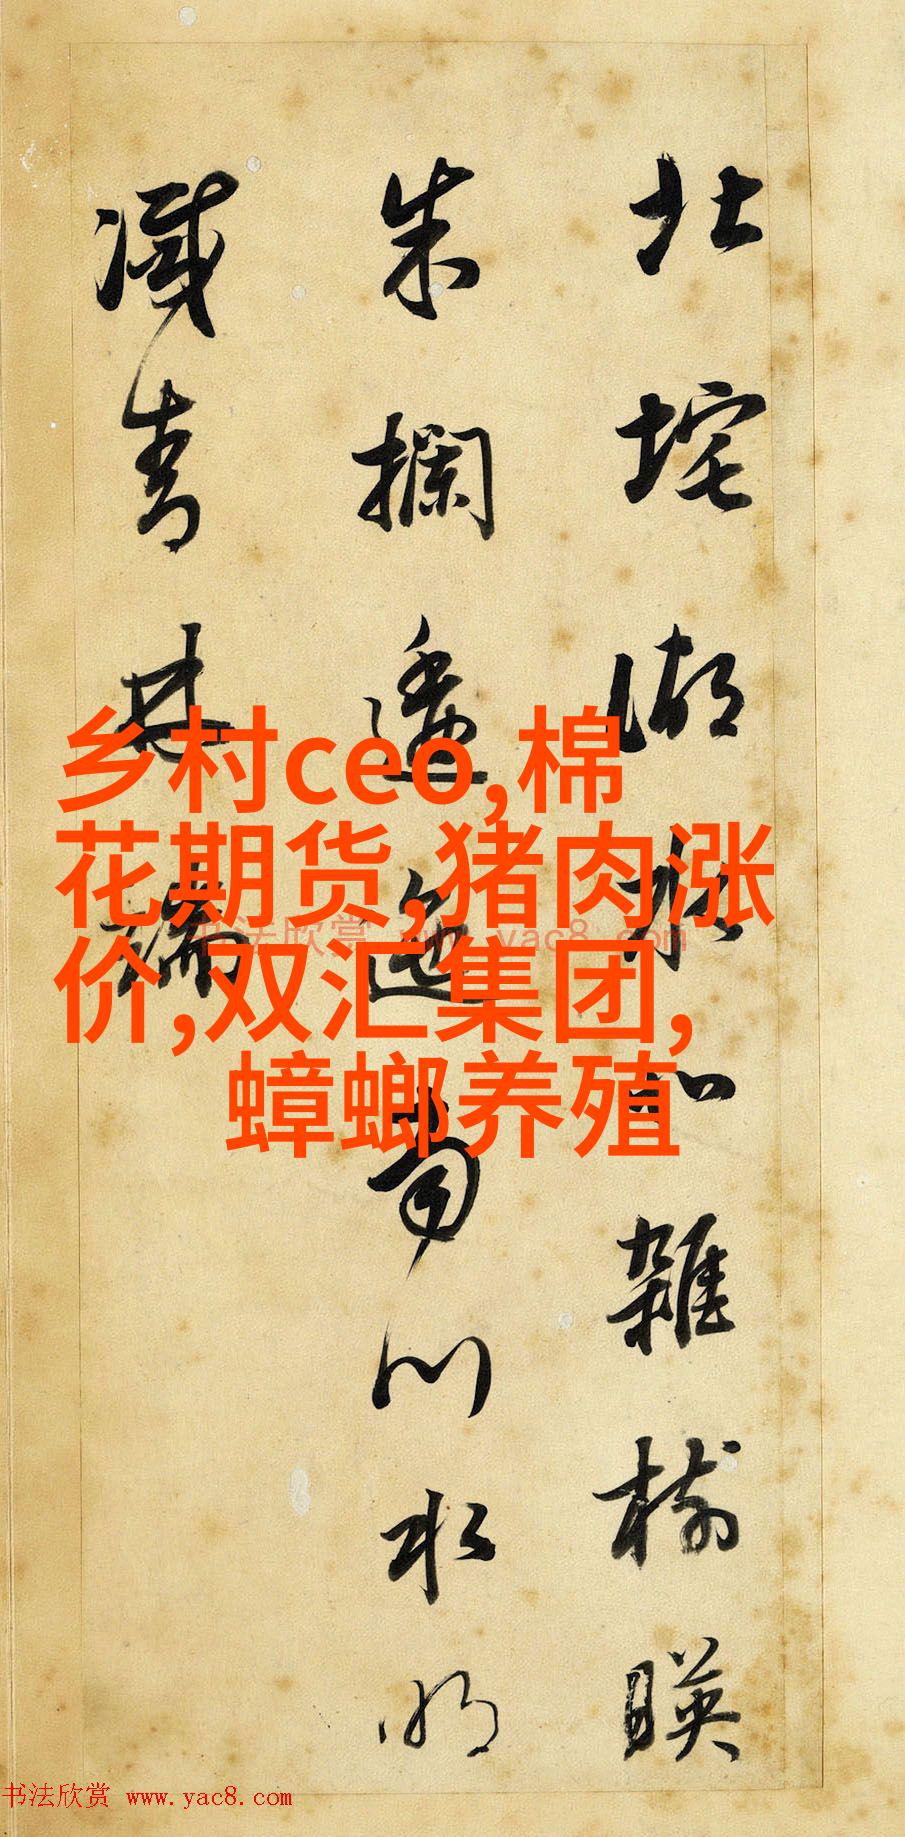 北垞湖水北雜樹暎
朱欄逶迤南川水明
滅青林端
乡村ceo,棉
花期货,猪肉涨
价,双汇集团,
蟑螂养殖
书法欣赏 www.yac8.com
书法欣赏 www.yac8.com